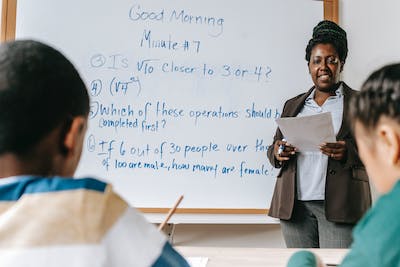 Good Morning
Minute #7
③ Is √10 closer to 3 or 4?
④ (√4²)
⑤ Which of these operations should b
completed first?
⑥ If 6 out of 30 people over the
of 100 are male, how many are female?